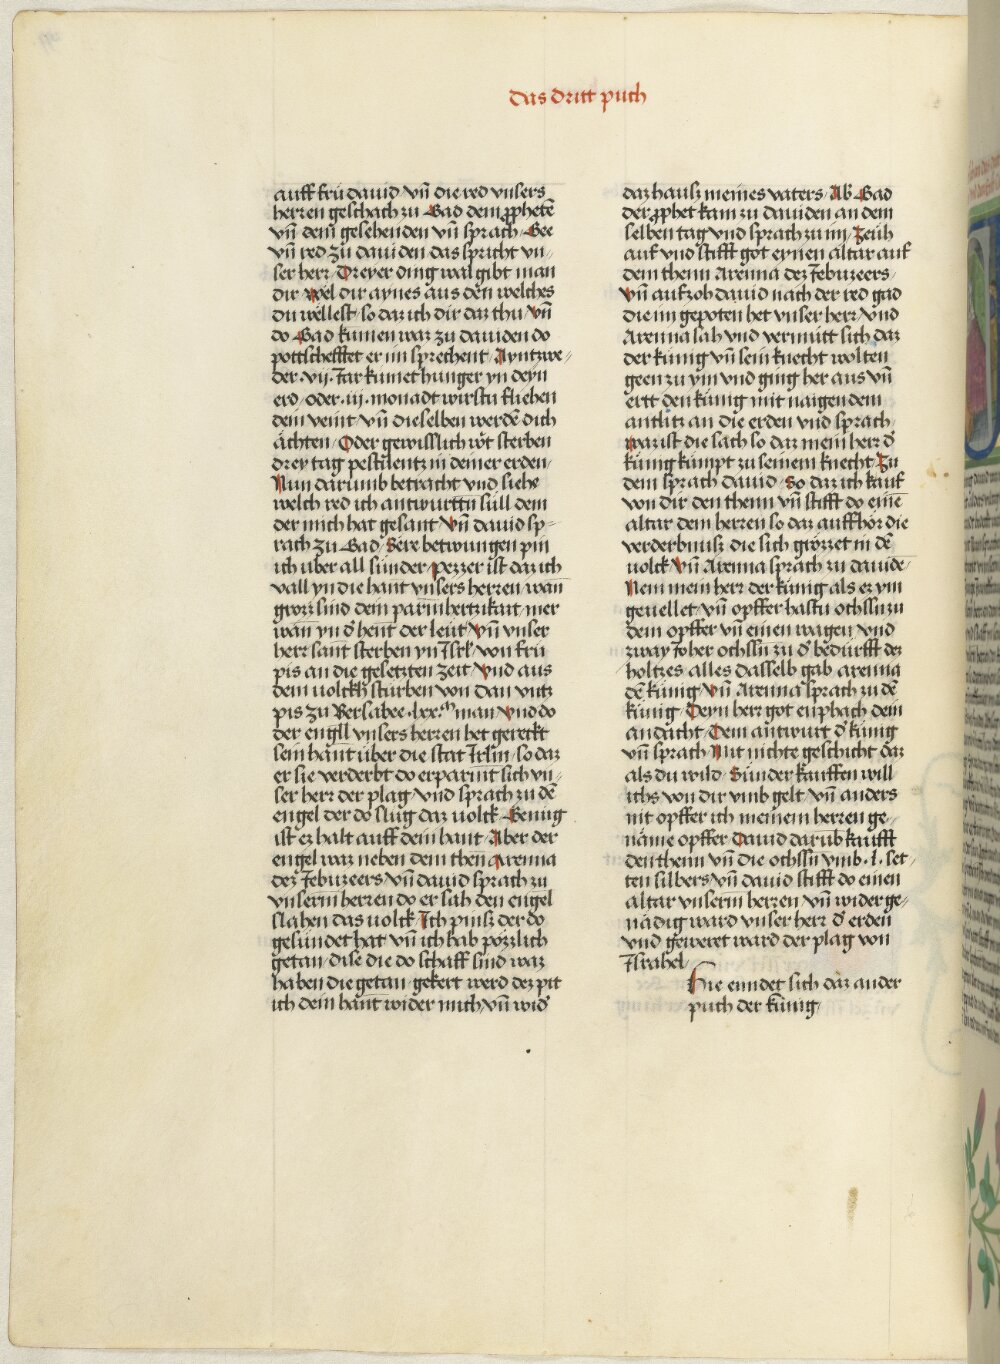 das dritt puch
auff fru dauid vn̄ die red vnsers
herren geschach zu Gad dem p̱phetē
vn̄ dem gesehenden vn̄ sprach Gee
vn̄ red zu dauiden das spricht vn⸗
ser herr Dreyer ding wal gibt man
dir wel dir aynes aus den welches
du wellest so daz ich dir daz thu Vn̄
do Gad kumen waz zu dauiden do
pottschefftet er im sprechent Ayntzwe⸗
der ·vij· Jar kumet hunger yn deyn
erd oder ·iij· monadt wirstu fliehen
dein veint vn̄ dieselben werdē dich
ächten Oder gewisslich w̄t sterben
drey tag pestilentz in deiner erden
Nun darumb betracht vnd siehe
welch red ich antwurttn süll dem
der mich hat gesant Vn̄ dauid sp⸗
rach zu Gad Sere betwungen pin
ich vber all sünder pezzer ist daz ich
vall yn die hant vnsers herren wan̄
groz sind dein parmhertzikait mer
wan̄ yn d̉ hent der leüt Vn̄ vnser
herr sant sterben yn Isrl̄ von fru
pis an die gesetzten zeit Vnd aus
dem uolckh sturben von Dan vntz
pis zu Bersabee ·lxx·ᵐ man Vnd do
der engll vnsers herren het gereckt
sein hant über die stat Jrlm̄ so daz
er sie verderbt do erparmt sich vn⸗
ser herr der plag vnd sprach zu dē
engel der do slug daz uolck Genug
ist ez halt auff dein hant Aber der
engel waz neben dem then Arenna
dez Jebuzeers vn̄ dauid sprach zu
vnserm herren do er sah den engel
slahen das uolck Ich pins der do
gesündet hat vn̄ ich hab pözzlich
getan dise die do schaff sind waz
haben die getan gekert werd dez pit
ich dein hant wider mich vn̄ wid̉
daz hausz meines vaters Ab̉ Gad
der p̱phet kam zu dauiden an dem
selben tag vnd sprach zu im Zeüh
auf vnd stifft got eynen altar auf
dem thenn Arenna dez Jebuzeers
Vn̄ aufzoh dauid nach der red gad
die im gepoten het vnser herr vnd
Arenna sah vnd vermutt sich daz
der künig vn̄ sein knecht wolten
geen zu ym vnd ging her aus vn̄
ertt den künig mit naigendem
antlitz an die erden vnd sprach
waz ist die sach so daz mein herr d̉
künig kümpt zu seinem knecht Zu
dem sprach dauid So daz ich kauf
von dir den thenn vn̄ stifft do einē
altar dem herren so daz auffhör die
verderbnusz die sich grözzet in dē
uolck Vn̄ Arenna sprach zu dauidē
Nem mein herr der künig als ez ym
geuellet vn̄ opffer hastu ochssn zu
dem opffer vn̄ einen wagen vnd
zway Joher ochssn zu d̉ bedürfft dez
holtzes alles dasselb gab arenna
dē künig Vn̄ Arenna sprach zu dē
künig Deyn herr got enphach dein
andacht Dem antwurt d̉ künig
vn̄ sprach Mit nichte geschicht daz
als du wild Sunder kauffen will
ichs von dir vmb gelt vn̄ anders
nit opffer ich meinem herren ge⸗
näme opffer Dauid darub̄ kaufft
den thenn vn̄ die ochssn vmb ·l· set⸗
ten silbers vn̄ dauid stifft do einen
altar vnserm herren vn̄ wider ge⸗
nädig ward vnser herr d̉ erden
vnd geweret ward der plag von
Israhel
Hie enndet sich daz ander
puch der künig